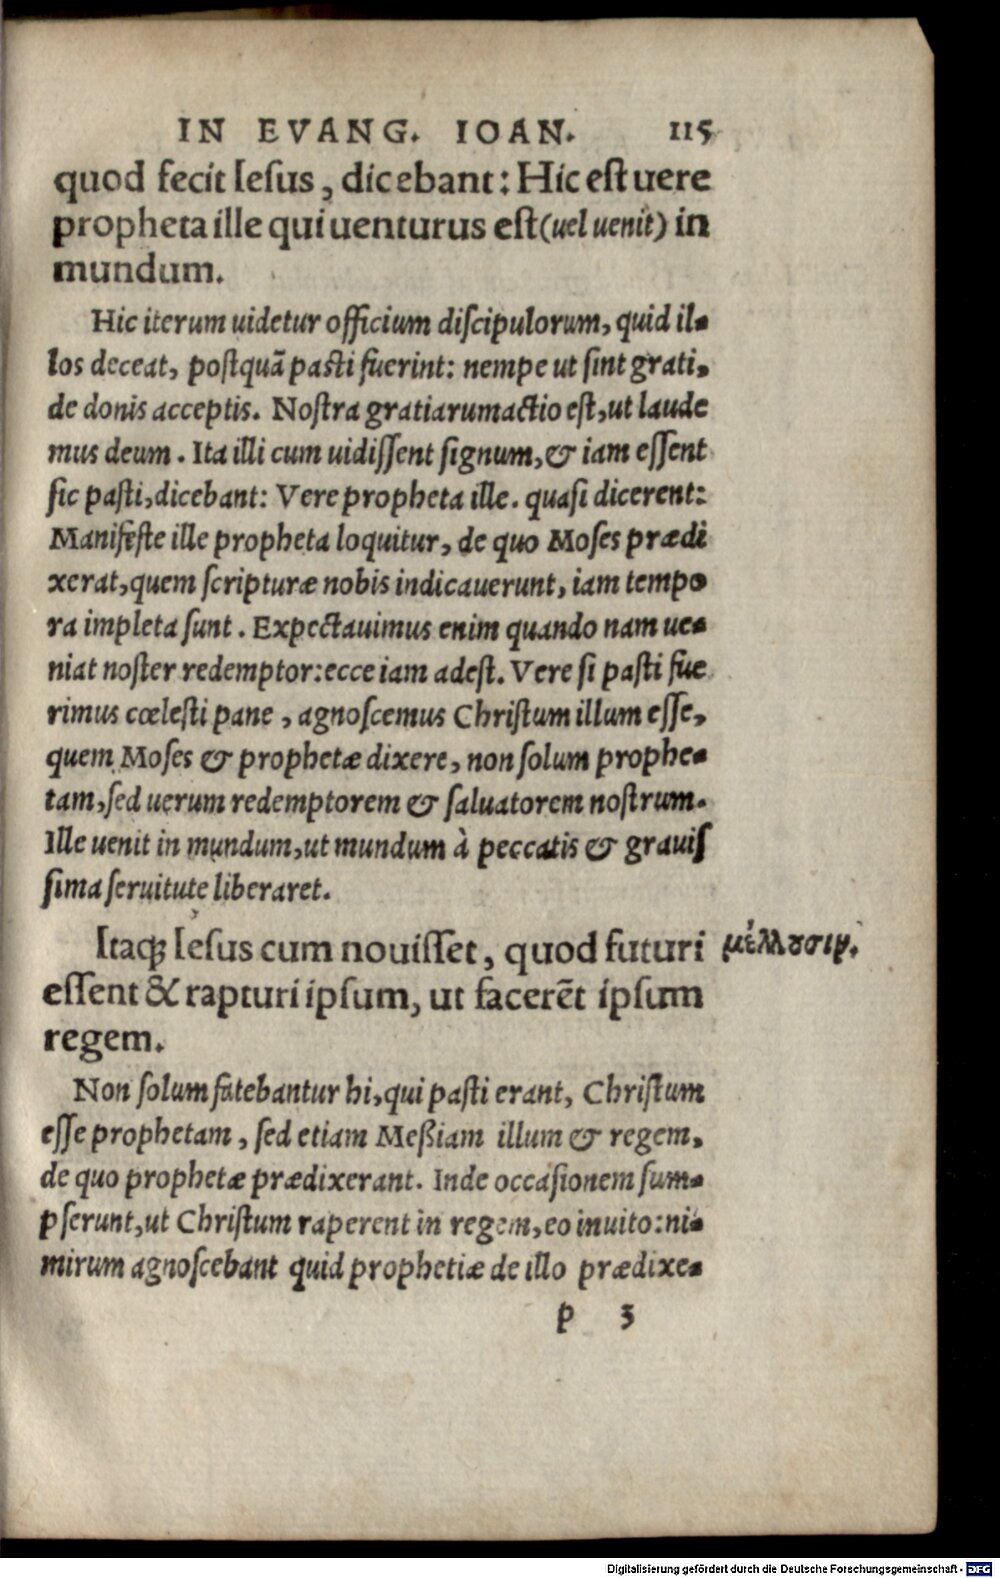 IN EVANG. IOAN. 115
quod fecit Iesus, dicebant: Hic est uere
propheta ille qui uenturus est (uel uenit) in
mundum.
Hic iterum uidetur officium discipulorum, quid il-
los deceat, postquã pasti fuerint: nempe ut sint grati,
de donis acceptis. Nostra gratiarumactio est, ut laude
mus deum. Ita illi cum uidissent signum, & iam essent
sic pasti, dicebant: Vere propheta ille. quasi dicerent:
Manifeste ille propheta loquitur, de quo Moses prædi
xerat, quem scripturæ nobis indicauerunt, iam tempo
ra impleta sunt. Expectauimus enim quando nam ue-
niat noster redemptor: ecce iam adest. Vere si pasti fue
rimus cœlesti pane, agnoscemus Christum illum esse,
quem Moses & prophetæ dixere, non solum prophe-
tam, sed uerum redemptorem & saluatorem nostrum.
Ille uenit in mundum, ut mundum à peccatis & grauis
sima seruitute liberaret.
Itaq; Iesus cum nouisset, quod futuri μέλλουσιν.
essent & rapturi ipsum, ut facerẽt ipsum
regem.
Non solum fatebantur hi, qui pasti erant, Christum
esse prophetam, sed etiam Meßiam illum & regem,
de quo prophetæ prædixerant. Inde occasionem sum-
pserunt, ut Christum raperent in regem, eo inuito: ni-
mirum agnoscebant quid prophetiæ de illo prædixe-
p 3
Digitalisierung gefördert durch die Deutsche Forschungsgemeinschaft - DFG